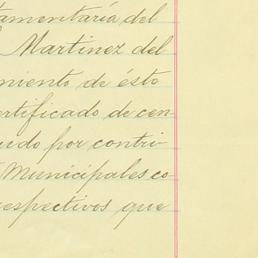 amentaría del
Martinez del
miento de ésto
ertificado de cen
udo por contri-
Municipales co
respectivos que